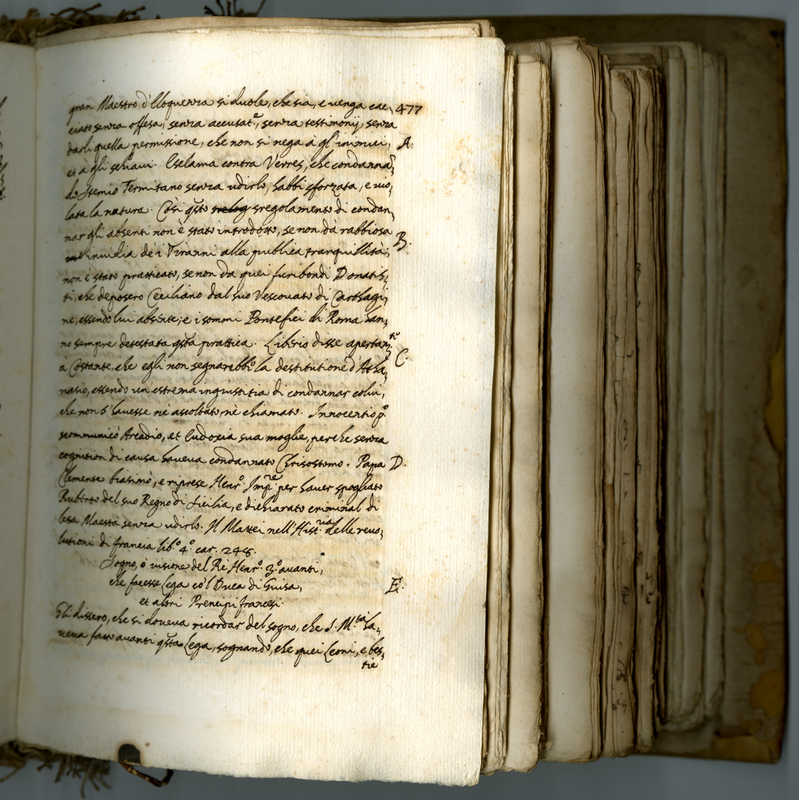 gran Maestro d'Eloquenza si duole, che sia, e venga cac, 477
ciato senza offesa, senza accusat.e, senza testimonij, senza
darli quella permissione, che non si nega a gl'inimici, A.
et à gli schiavi. Esclama contra Verres, che condanna,
do Stenio Termitano senza udirlo, habbi sforzata, e vio,
lata la natura. Così q̃sto sregolamento di condan,
nar gli absenti non è stato introdotto, se non da rabbiosa
invidia dei Tiranni alla publica tranquillità; B.
non è stato pratticato, se non da quei furibondi Donatis,
ti, che deposero Ceciliano dal suo Vescovato di Carthagi,
ne, essendo lui absente; e i sommi Pontefici di Roma han,
no sempre detestata q̃sta prattica. Liberio disse apertam.te
à Costante che egli non segnarebbe la destitutione d'Atha, C.
nasio, essendo un'estrema ingiustitia di condannar colui,
che non s'havesse nè ascoltato nè chiamato. Innocentio p.o
scommunicò Arcadio, et Eudoxia sua moglie, perche senza
cognition di causa haveva condannato Chrisostomo. Papa D.
Clemente biasimò, e riprese Henr.o Imp.re per haver spogliato
Ruberto del suo Regno di Sicilia, e dichiarato criminal di
lesa Maestà senza udirlo. Il Mazzei nell'Hist.ria delle revo,
lutioni di francia lib.o 4.o car. 248.
Sogno, ò visione del Re Henr.o 3.o avanti,
che facesse Lega co'l Duca di Guisa, E.
et altri Prencipi francesi.
Gli dissero, che si doveva ricordar del sogno, che S. M.tà ha,
veva fatto avanti q̃sta Lega, sognando, che quei Leoni, e bes,
tie